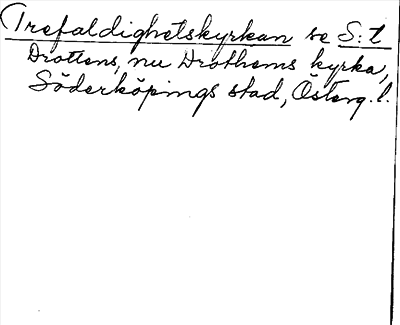 Trefaldighetskyrkan se S:t
Drottens, nu Drothems kyrka,
Söderköpings stad, Österg. l.